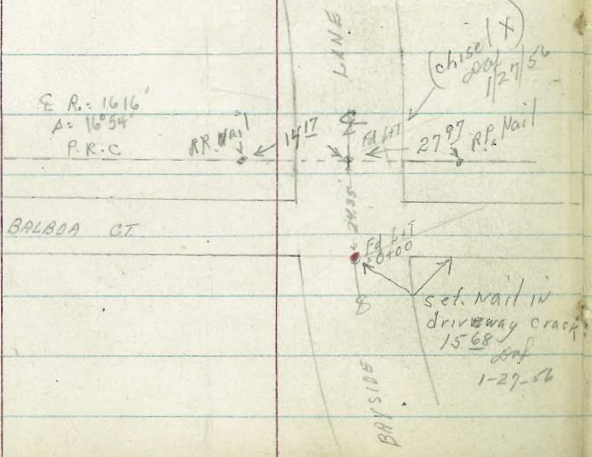 LANE
(chisel X)
1/27/56
℄ R. = 1616'
Δ = 16°54'
P.R.C
R.R. Nail
14 17
℄
Fd L+T
27 97
R.P. Nail
24.35'
BALBOA CT.
Fd L+T
0+00
set. Nail in
driveway crack
15 68
1-27-56
BAYSIDE